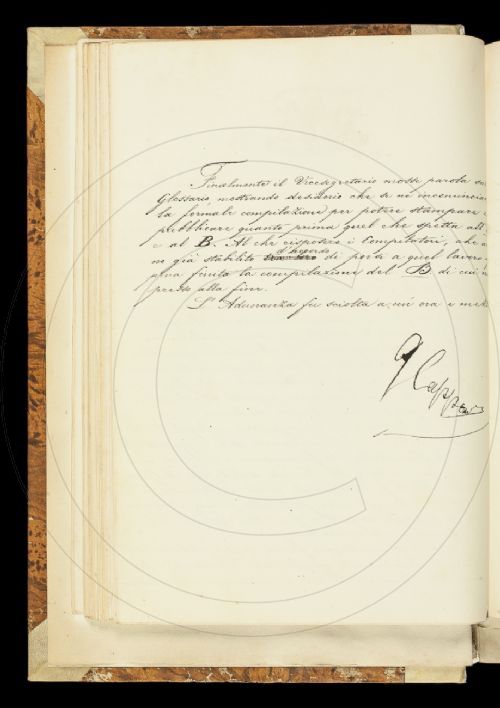 Finalmente il Vicesegretario mosse parola
Glossario, mostrando desiderio che se ne incominciasse
la formale compilazione per potere stampare e
pubblicare quanto prima quel che spetta all'
e al B. Al che risposero i Compilatori, che
già stabilito d'accordo di porsi a quel lavoro
finita la compilazione del B di cui
presso alla fine.
L'Adunanza fu sciolta a un ora e
G Capponi